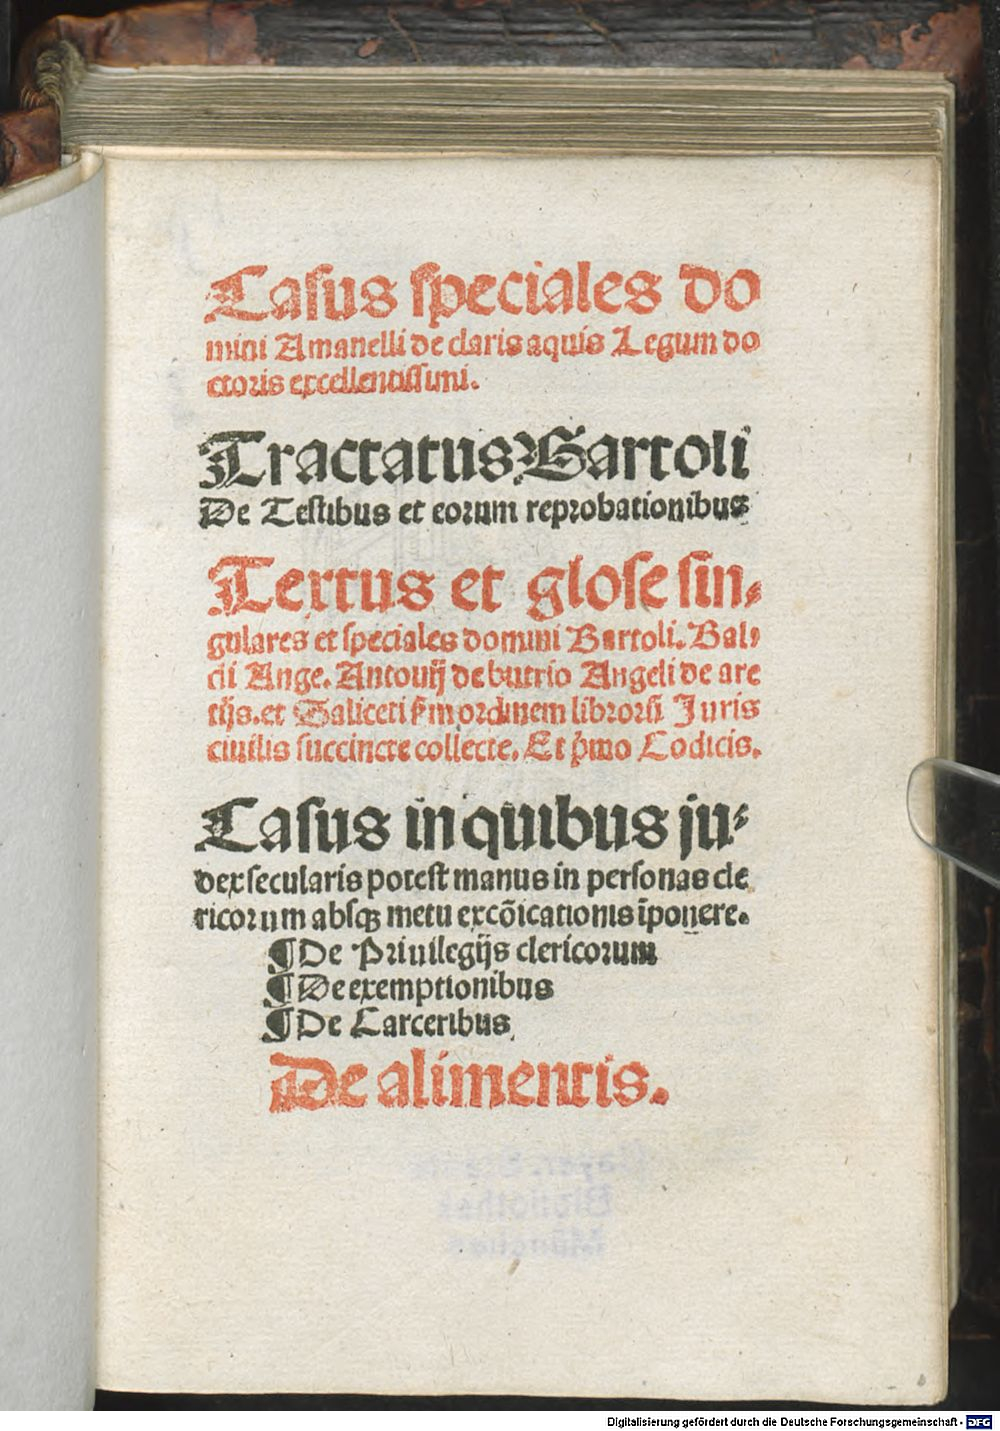 Casus speciales do
mini Amanelli de claris aquis Legum do
ctoris excellentissimi.
Tractatus Bartoli
De Testibus et eorum reprobationibus
Textus et glose sin⸗
gulares et speciales domini Bartoli. Bal⸗
di Ange. Antonij de butrio Angeli de are
tijs. et Saliceti s̄m ordinem librorū Juris
ciuilis succincte collecte. Et p̄mo Codicis.
Casus in quibus ju⸗
dex secularis potest manus in personas cle
ricorum absqꝫ metu excōicationis īponere.
¶ De Priuilegijs clericorum
¶ De exemptionibus
¶ De Carceribus
De alimentis.
Bayer. Staats
Bibliothek
München
Digitalisierung gefördert durch die Deutsche Forschungsgemeinschaft - DFG